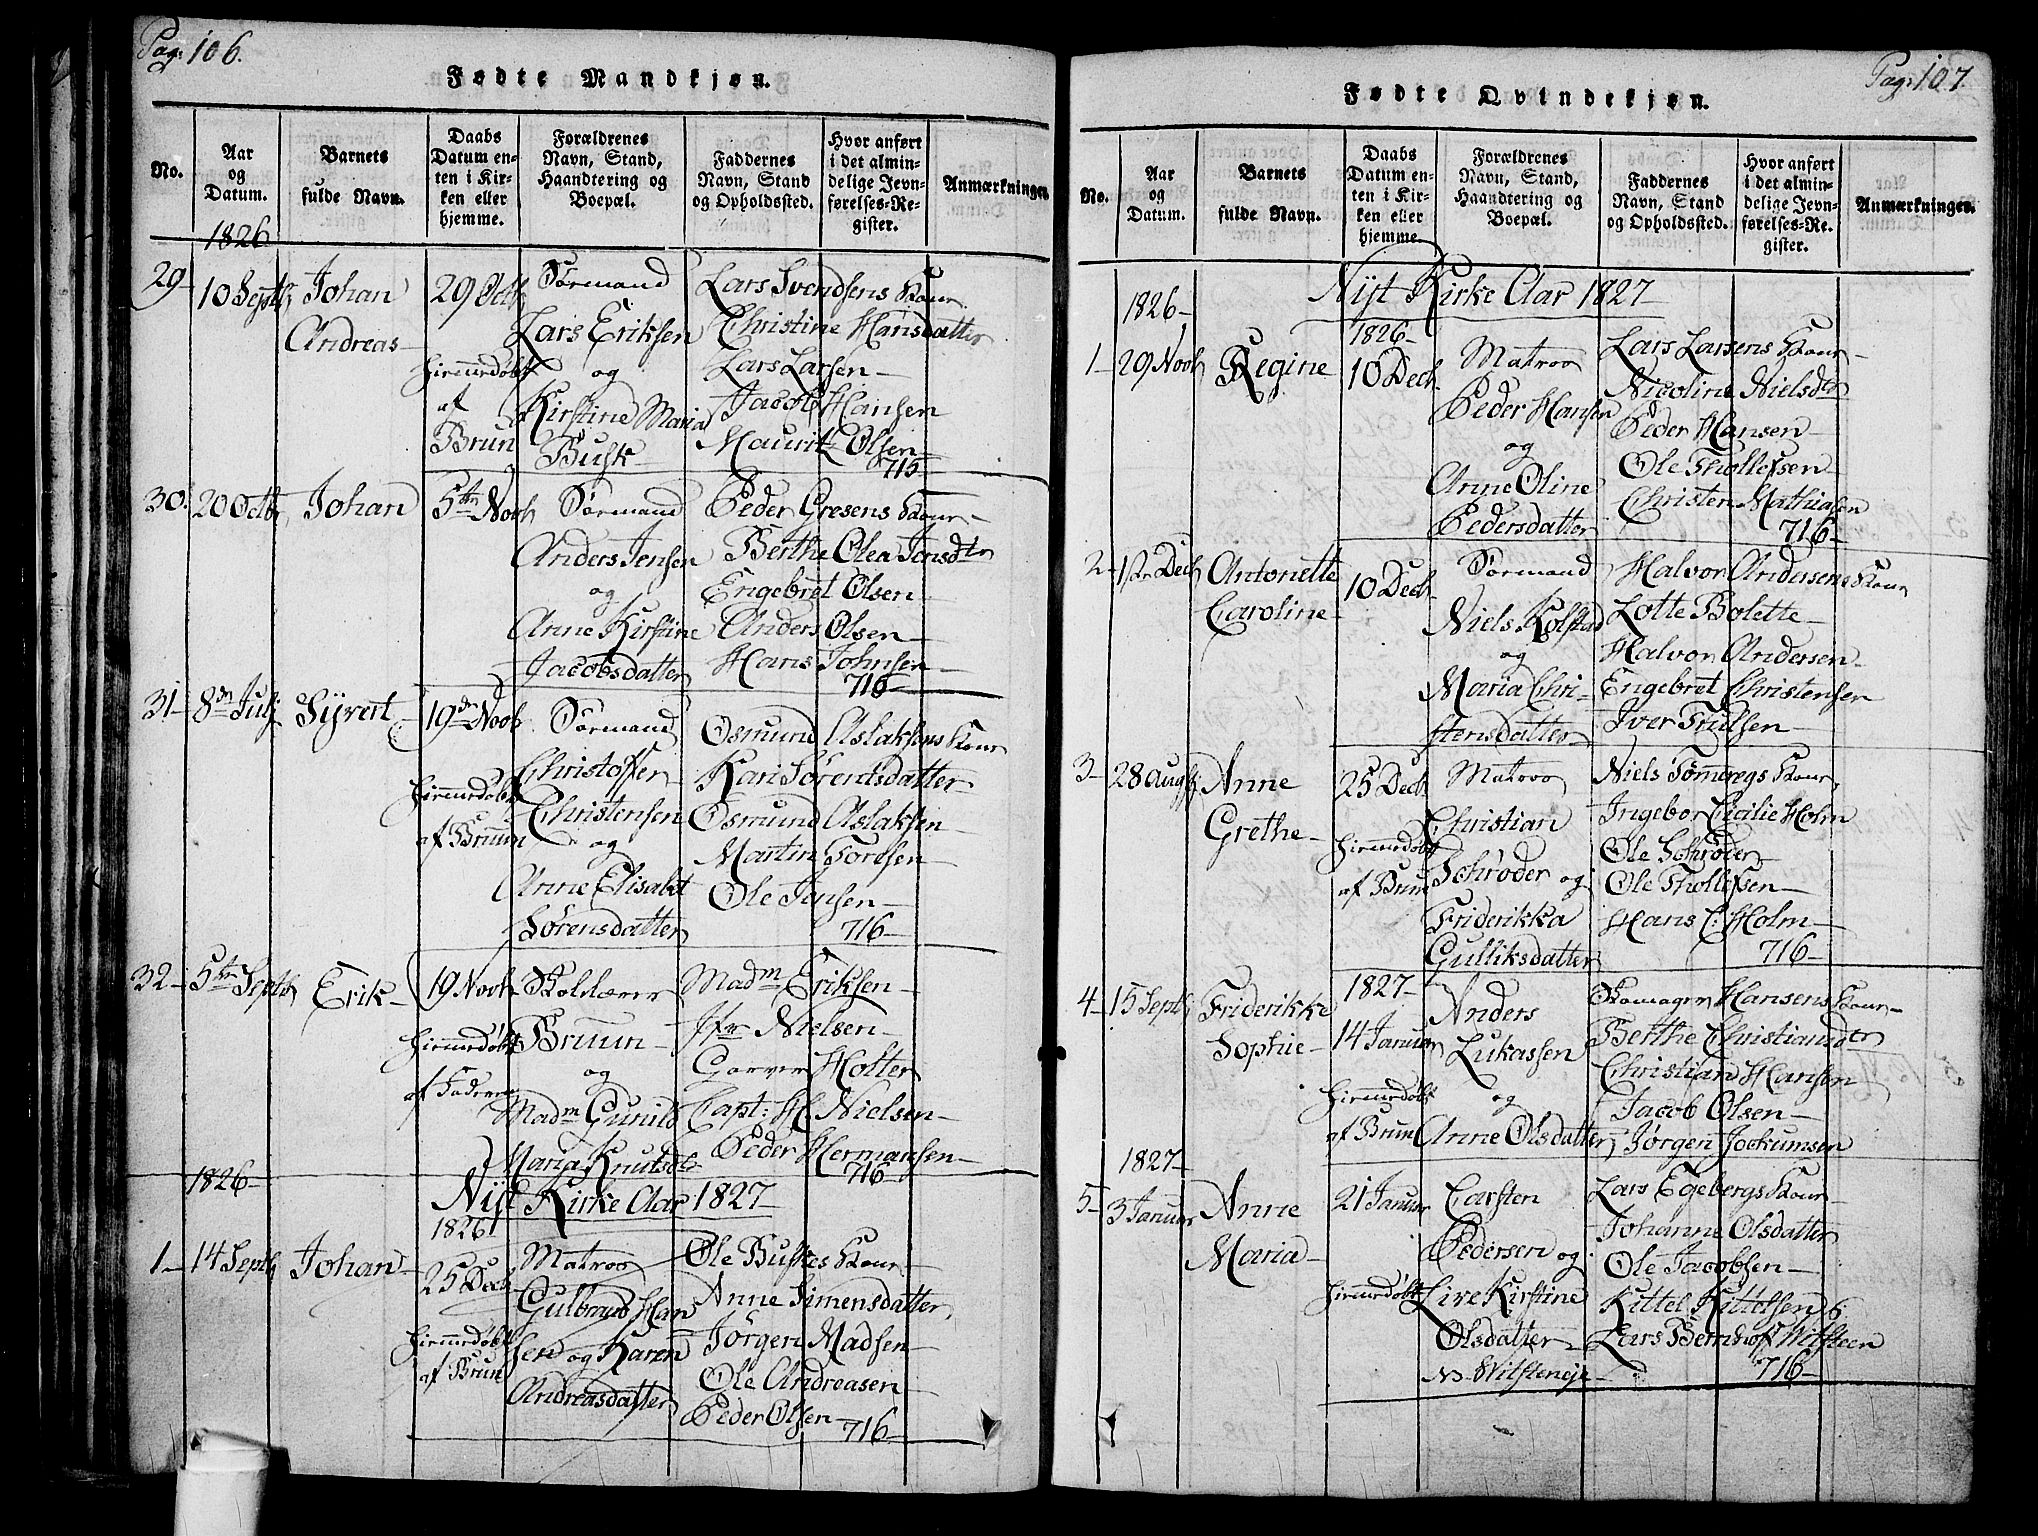 Pag: 106.
Fødte Mandkjøn.
No.
Aar
og
Datum.
Barnets
fulde Navn.
Daabs
Datum en-
ten i Kir-
ken eller
hjemme.
Forældrenes
Navn, Stand,
Haandtering og
Boepæl.
Faddernes
Navn, Stand
og Opholdssted.
Hvor anført
i det almin-
delige Jevn-
førelses-Re-
gister.
Anmærkninger.
1826
29-
10 Septb
Johan
Andreas-
29 Octb
hiemmedøbt
af
Brun
Sørmand
Lars Eriksen
og
Kirstine Maria
Busk-
Lars Svendsens Kone-
Christine Hansdatter
Lars Larsen-
Jacob Hansen
Mauritz Olsen-
715-
30.
20 Octbr
Johan
5te Novb
Sørmand
Anders Jensen
og
Anne Kirstine
Jacobsdatter
Peder Gresens Kone-
Berthe Olea Jensdtr
Engebret Olsen-
Anders Olsen-
Hans Johnsen-
716-
31-
8de Julj
Syvert-
19de Novb
hiemmedøbt
af Bruun
Sørmand
Christoffer
Christensen
og
Anne Elisabet
Sørensdatter
Osmund Aslaksens Kone
Kari Sørensdatter
Osmund Aslaksen-
Martin Toresen-
Ole Jensen-
716-
32-
5te Septb
Erik-
19 Novb-
hiemmedøbt
af Faderen
Skolelærer
Bruun-
og
Madm Gunild
Maria Knutsdtr
Madm Eriksen-
Jfr Nielsen-
Garver Holter
Capt: H Nielsen-
Peder Hermansen-
716-
1826-
Nyt Kirke Aar 1827-
1826
1-
14 Septb
Johan-
25 Decb
hiemmedøbt
af Brun
Matros
Gulbrand Han
sen og Karen
Andreasdatter
Ole Buskes Kone-
Anne Simensdatter
Jørgen Madsen-
Ole Andreasen
Peder Olsen-
716-
Pag: 107.
Fødte Qvindekjøn.
No.
Aar
og
Datum.
Barnets
fulde Navn.
Daabs
Datum en-
ten i Kir-
ken eller
hjemme.
Forældrenes
Navn, Stand,
Haandtering og
Boepæl.
Faddernes
Navn, Stand
og Opholdssted.
Hvor anført
i det almin-
delige Jevn-
førelses-Re-
gister.
Anmærkninger.
Nyt Kirke Aar 1827-
1826-
1826-
1-
29 Novb
Regine
10 Decb
Matros
Peder Hansen
og
Anne Oline
Pedersdatter
Lars Larsens Kone-
Nicoline Nielsdtr
Peder Hansen-
Ole Thollefsen-
Christen Mathiasen
716-
2-
1ste Decb
Antonette
Caroline-
10 Decb-
Sørmand
Niels Kolstad
og
Maria Chri-
stensdatter-
Halvor Andersens Kone
Lotte Bolette-
Halvor Andersen-
Engebret Christensen
Iver Truelsen-
3-
28 Augstj
Anne
Grethe-
25 Decb
hiemmedøbt
af Brun
Matros
Christian
Schrøder og
Friderikka
Gulliksdatter
Niels Tømmregs Kone
Ingebor Cicilie Holm
Ole Schrøder-
Ole Thollefsen-
Hans C: Holm-
716-
4-
15 Septb
Friderikke
Sophie-
1827-
14 Januar
hiemmedøbt
af Brun
Anders
Lukassen
og
Anne Olsdatter
Skomager Hansens Kone-
Berthe Christiansdtr
Christian Hansen
Jacob Olsen-
Jørgen Jockumsen
1827-
5-
3 Januar
Anne
Maria-
21 Januar
hiemmedøbt
Carsten
Pedersen og
Live Kirstine
Olsdatter-
Lars Egebergs Kone-
Johanne Olsdatter
Ole Jacobsen-
Kittel Kittelsen
Lars Berndhoft Wefsteen
716-